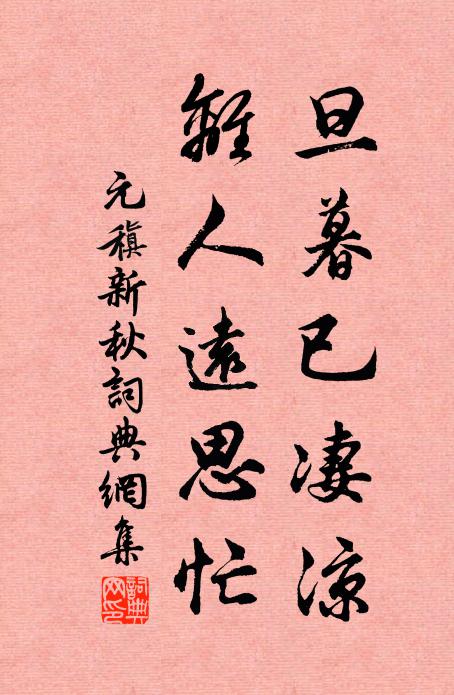 旦暮已凄涼
離人遠思忙
元稹新秋詞典網集
詞典
网印